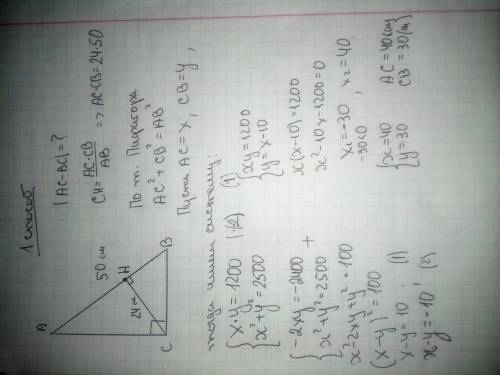 1 способ
A
50 см
H
24 см
C
B
|AC-BC|=?
CH = AC·CB / AB => AC·CB = 24·50
По т. Пифагора
AC² + CB² = AB²
Пусть AC = x, CB = y,
тогда имеем систему:
{ x·y = 1200 |·(2)
{ x² + y² = 2500
{ -2xy = -2400
{ x² + y² = 2500 +
x² - 2xy + y² = 100
(x-y)² = 100
x-y = 10; (1)
x-y = -10; (2)
(1) { xy = 1200
{ y = x-10
x(x-10) = 1200
x² - 10x - 1200 = 0
x₁ = -30, x₂ = 40.
-30<0
{ x = 40
{ y = 30
AC = 40 (см)
CB = 30 (см)